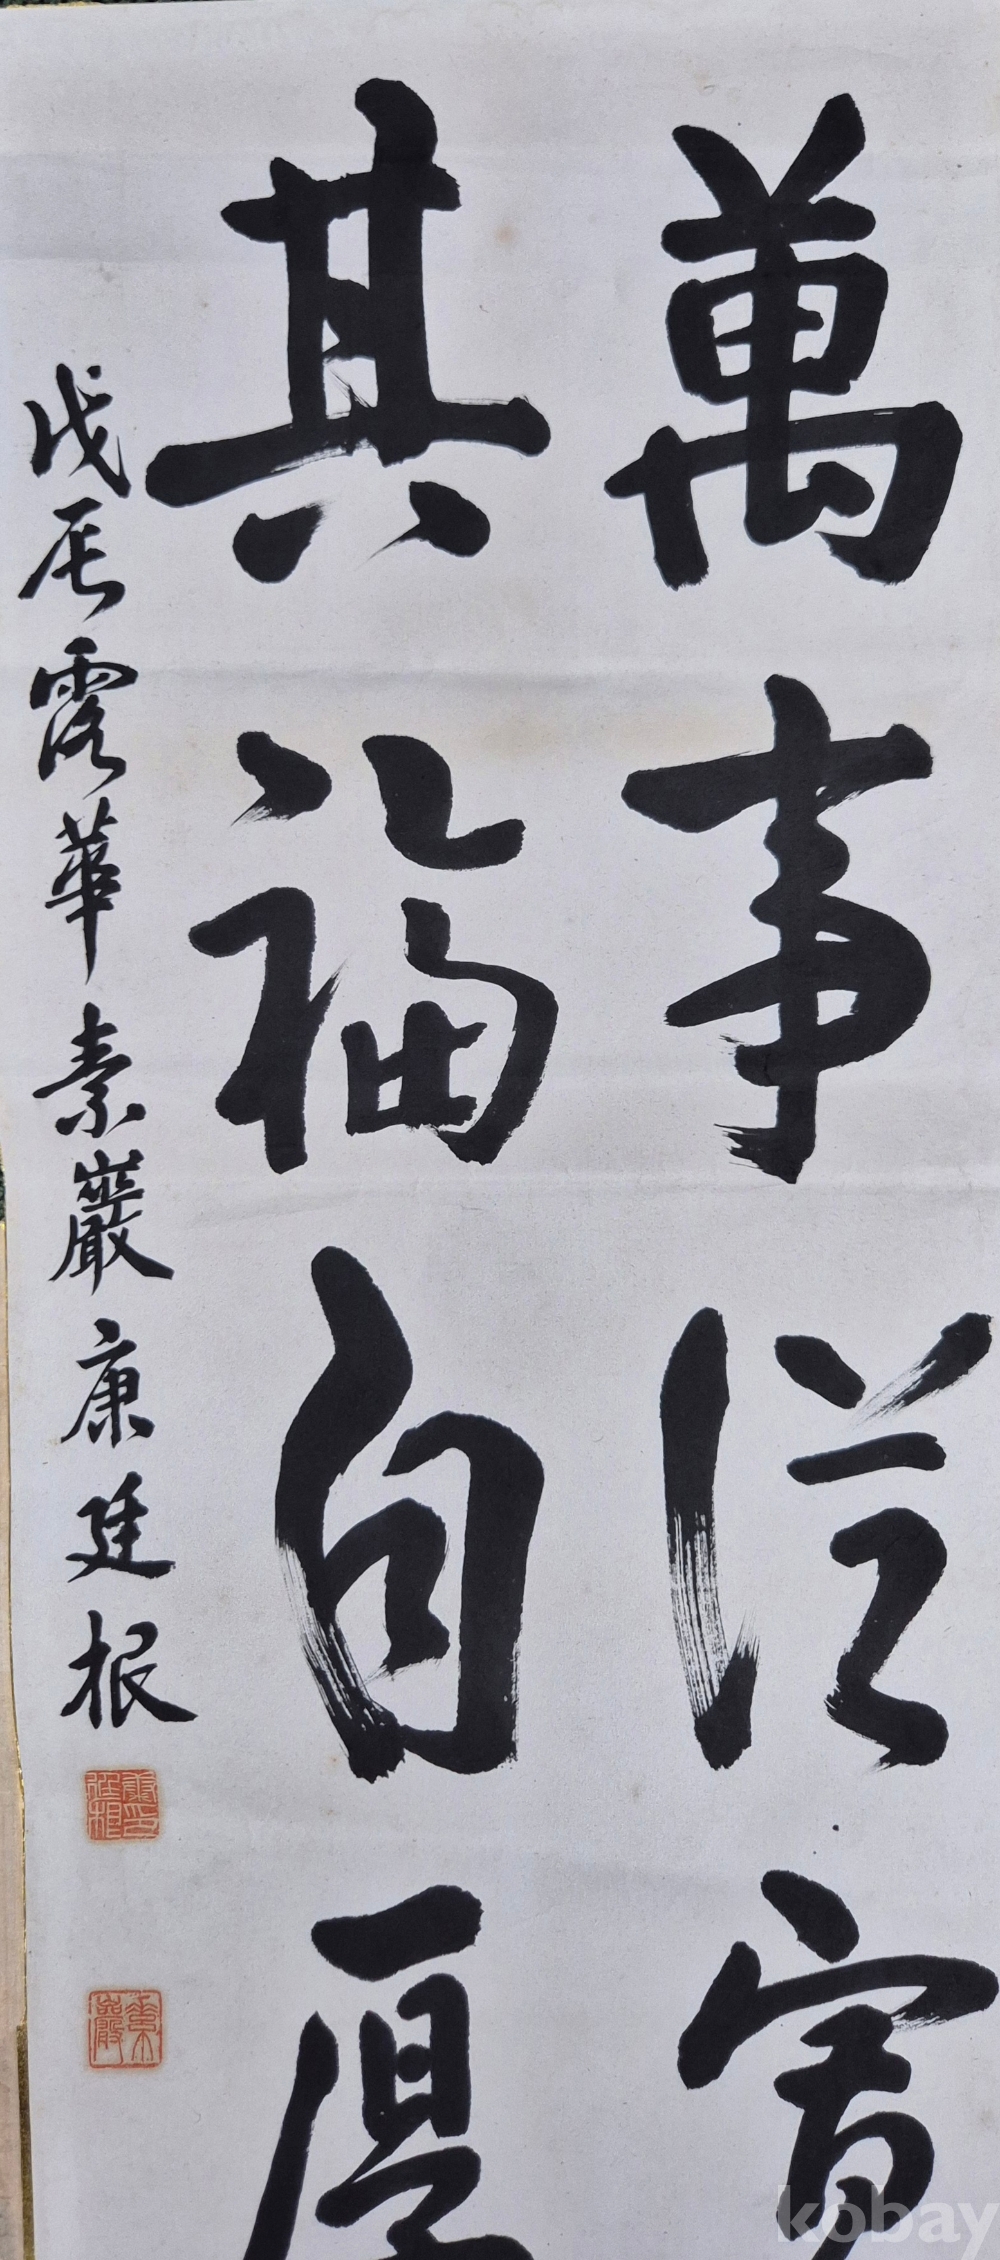 萬事從寬
其福自厚
戊辰露華 素巖 康廷根
kobay